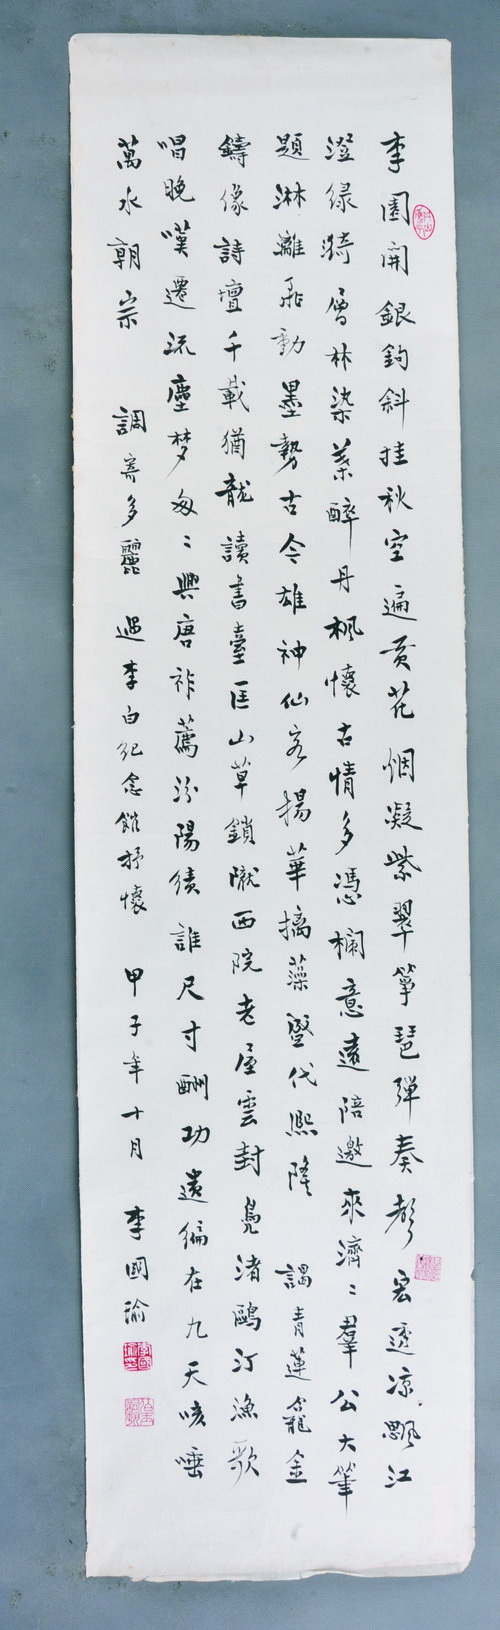 李園開銀鉤斜挂秋空遍黃花烟凝紫翠箏琶彈奏聲宏透凉飄江
澄绿漪層林染葉醉丹楓懷古情多憑欄意遠陪邀來濟〻羣公大筆
題淋漓飛動墨勢古今雄神仙客揚華摛藻盛代熙隆 謁青蓮龕金
鑄像詩壇千載猶龍讀書臺匡山草鎖隴西院老屋雲封鳧渚鷗汀漁歌
唱晚嘆遷流塵梦匆〻興唐祚薦汾陽績誰尺寸酬功遺編在九天咳唾
萬水朝宗 調寄多麗 過李白纪念館抒懷 甲子年十月 李國瑜